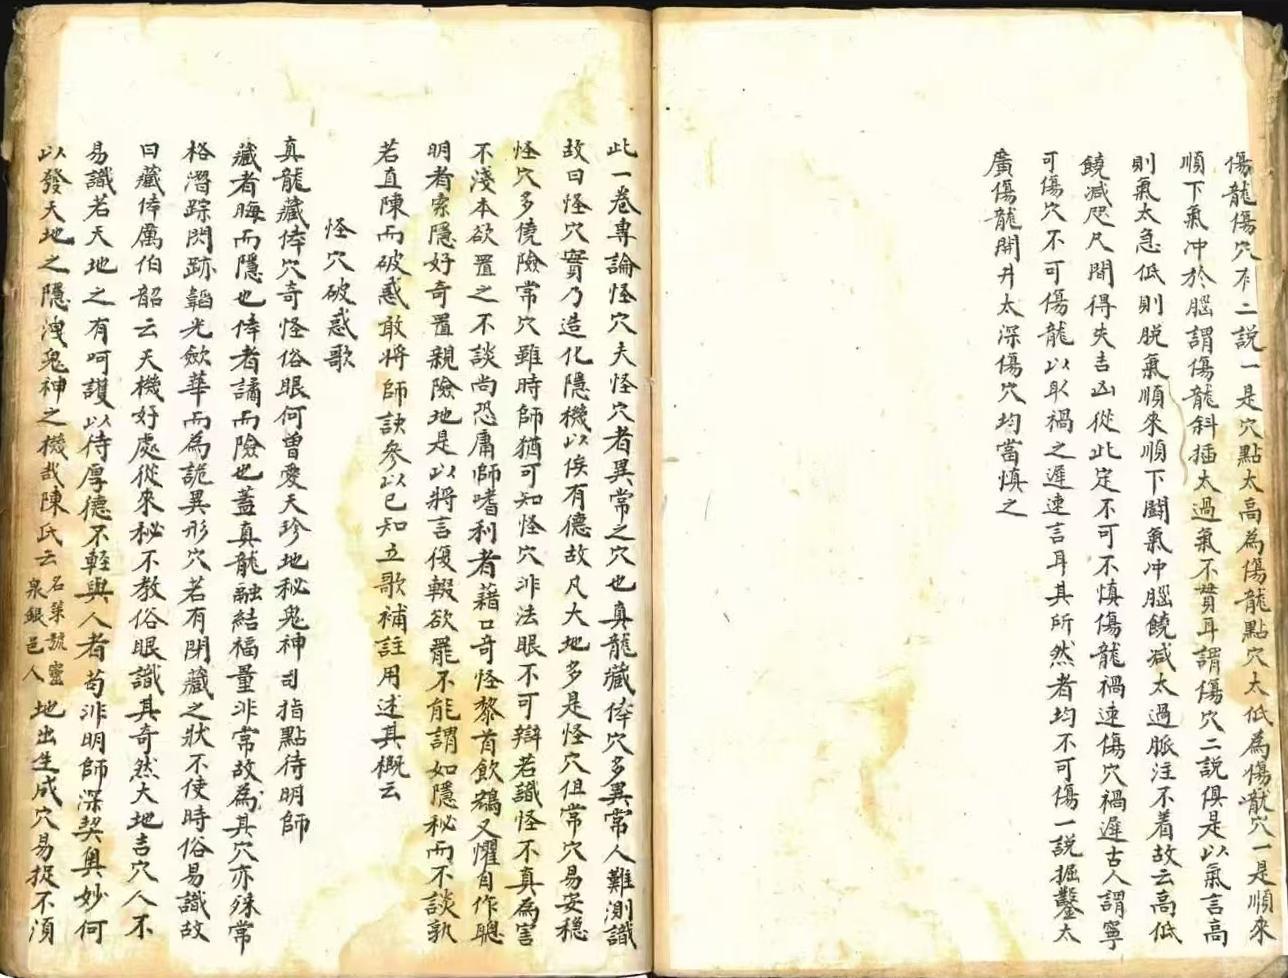 傷龍傷穴有二説一是穴點太高為傷龍點穴太低為傷穴一是順來
順下氣冲於腦謂傷龍斜插太過氣不貫耳謂傷穴二説俱是以氣言高
則氣太急低則脱氣順來順下鬪氣冲腦饒减太過脈注不着故云高低
饒减咫尺間得失吉凶從此定不可不慎傷龍禍速傷穴禍遲古人謂寧
可傷穴不可傷龍以取禍之遲速言耳其所然者均不可傷一説掘鑿太
廣傷龍開井太深傷穴均當慎之
此一卷專論怪穴夫怪穴者異常之穴也真龍藏倖穴多異常人難測識
故曰怪穴實乃造化隱機以俟有德故凡大地多是怪穴但常穴易安穩
怪穴多僥險常穴雖時師猶可知怪穴非法眼不可辯若識怪不真為害
不淺本欲置之不談尚恐庸師嗜利者藉口奇怪黎首飲鴆又懼自作聰
明者索隱好奇置親險地是以將言復輟欲罷不能謂如隱秘而不談孰
若直陳而破惑敢將師訣參以已知立歌補註用述其概云
怪穴破惑歌
真龍藏倖穴奇怪俗眼何曾愛天珍地秘鬼神司指點待明師
藏者晦而隱也倖者譎而險也蓋真龍融結福量非常故為其穴亦殊常
格潛踪閃跡韜光歛華而為詭異形穴若有閉藏之狀不使時俗易識故
曰藏倖厲伯韶云天機好處從來秘不教俗眼識其奇然大地吉穴人不
易識若天地之有呵護以待厚德不輕與人者苟非明師深契奥妙何
以發天地之隱洩鬼神之機哉陳氏云名榮號靈泉銀邑人地出生成穴易捉不須